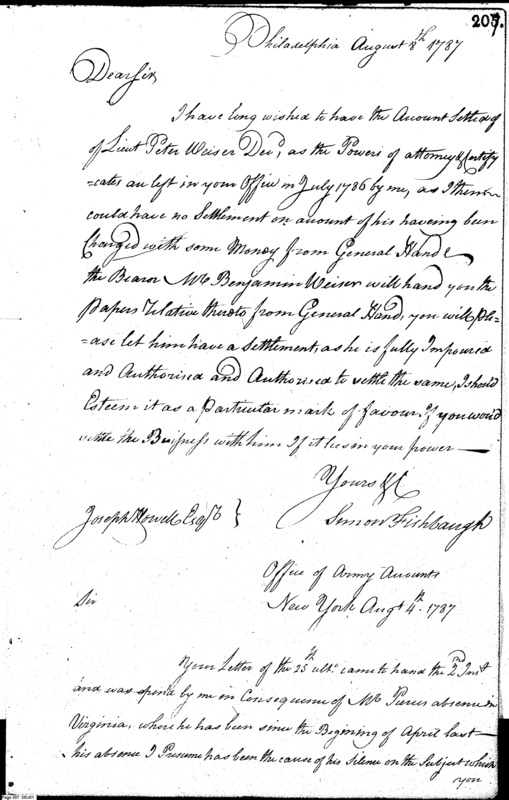 207.
Philadelphia August 8th 1787
Dear Sir,
I have long wished to have the Account Settled of
of Lieut Peter Weiser Decd, as the Powers of attorney & Certify
=cates are left in your Office in July 1786 by me, as I then
could have no Settlement on account of his haveing been
Charged with some Money from General Hand
the Bearor Mr. Benjamin Weiser will hand you the
Papers Relative thereto from General Hand, you will ple=
=ase let him have a Settlement, as he is fully Impoured
and Authorised and Authorised to settle the same, I should
Esteem it as a Particular mark of favour. If you would
settle the Buisness with him If it lies in your power —
Yours &c
Joseph Howell Esqr } Simon Fishbaugh
Office of Army Accounts
Sir New York Augt 4th. 1787
Your Letter of the 25th ulto. came to hand the 2nd Inst
and was opend by me in Consequence of Mr. Pierces absence in
Virginia, where he has been since the Begining of April last —
his absence I Presume has been the cause of his Silence on the Subject which
you
Page 207